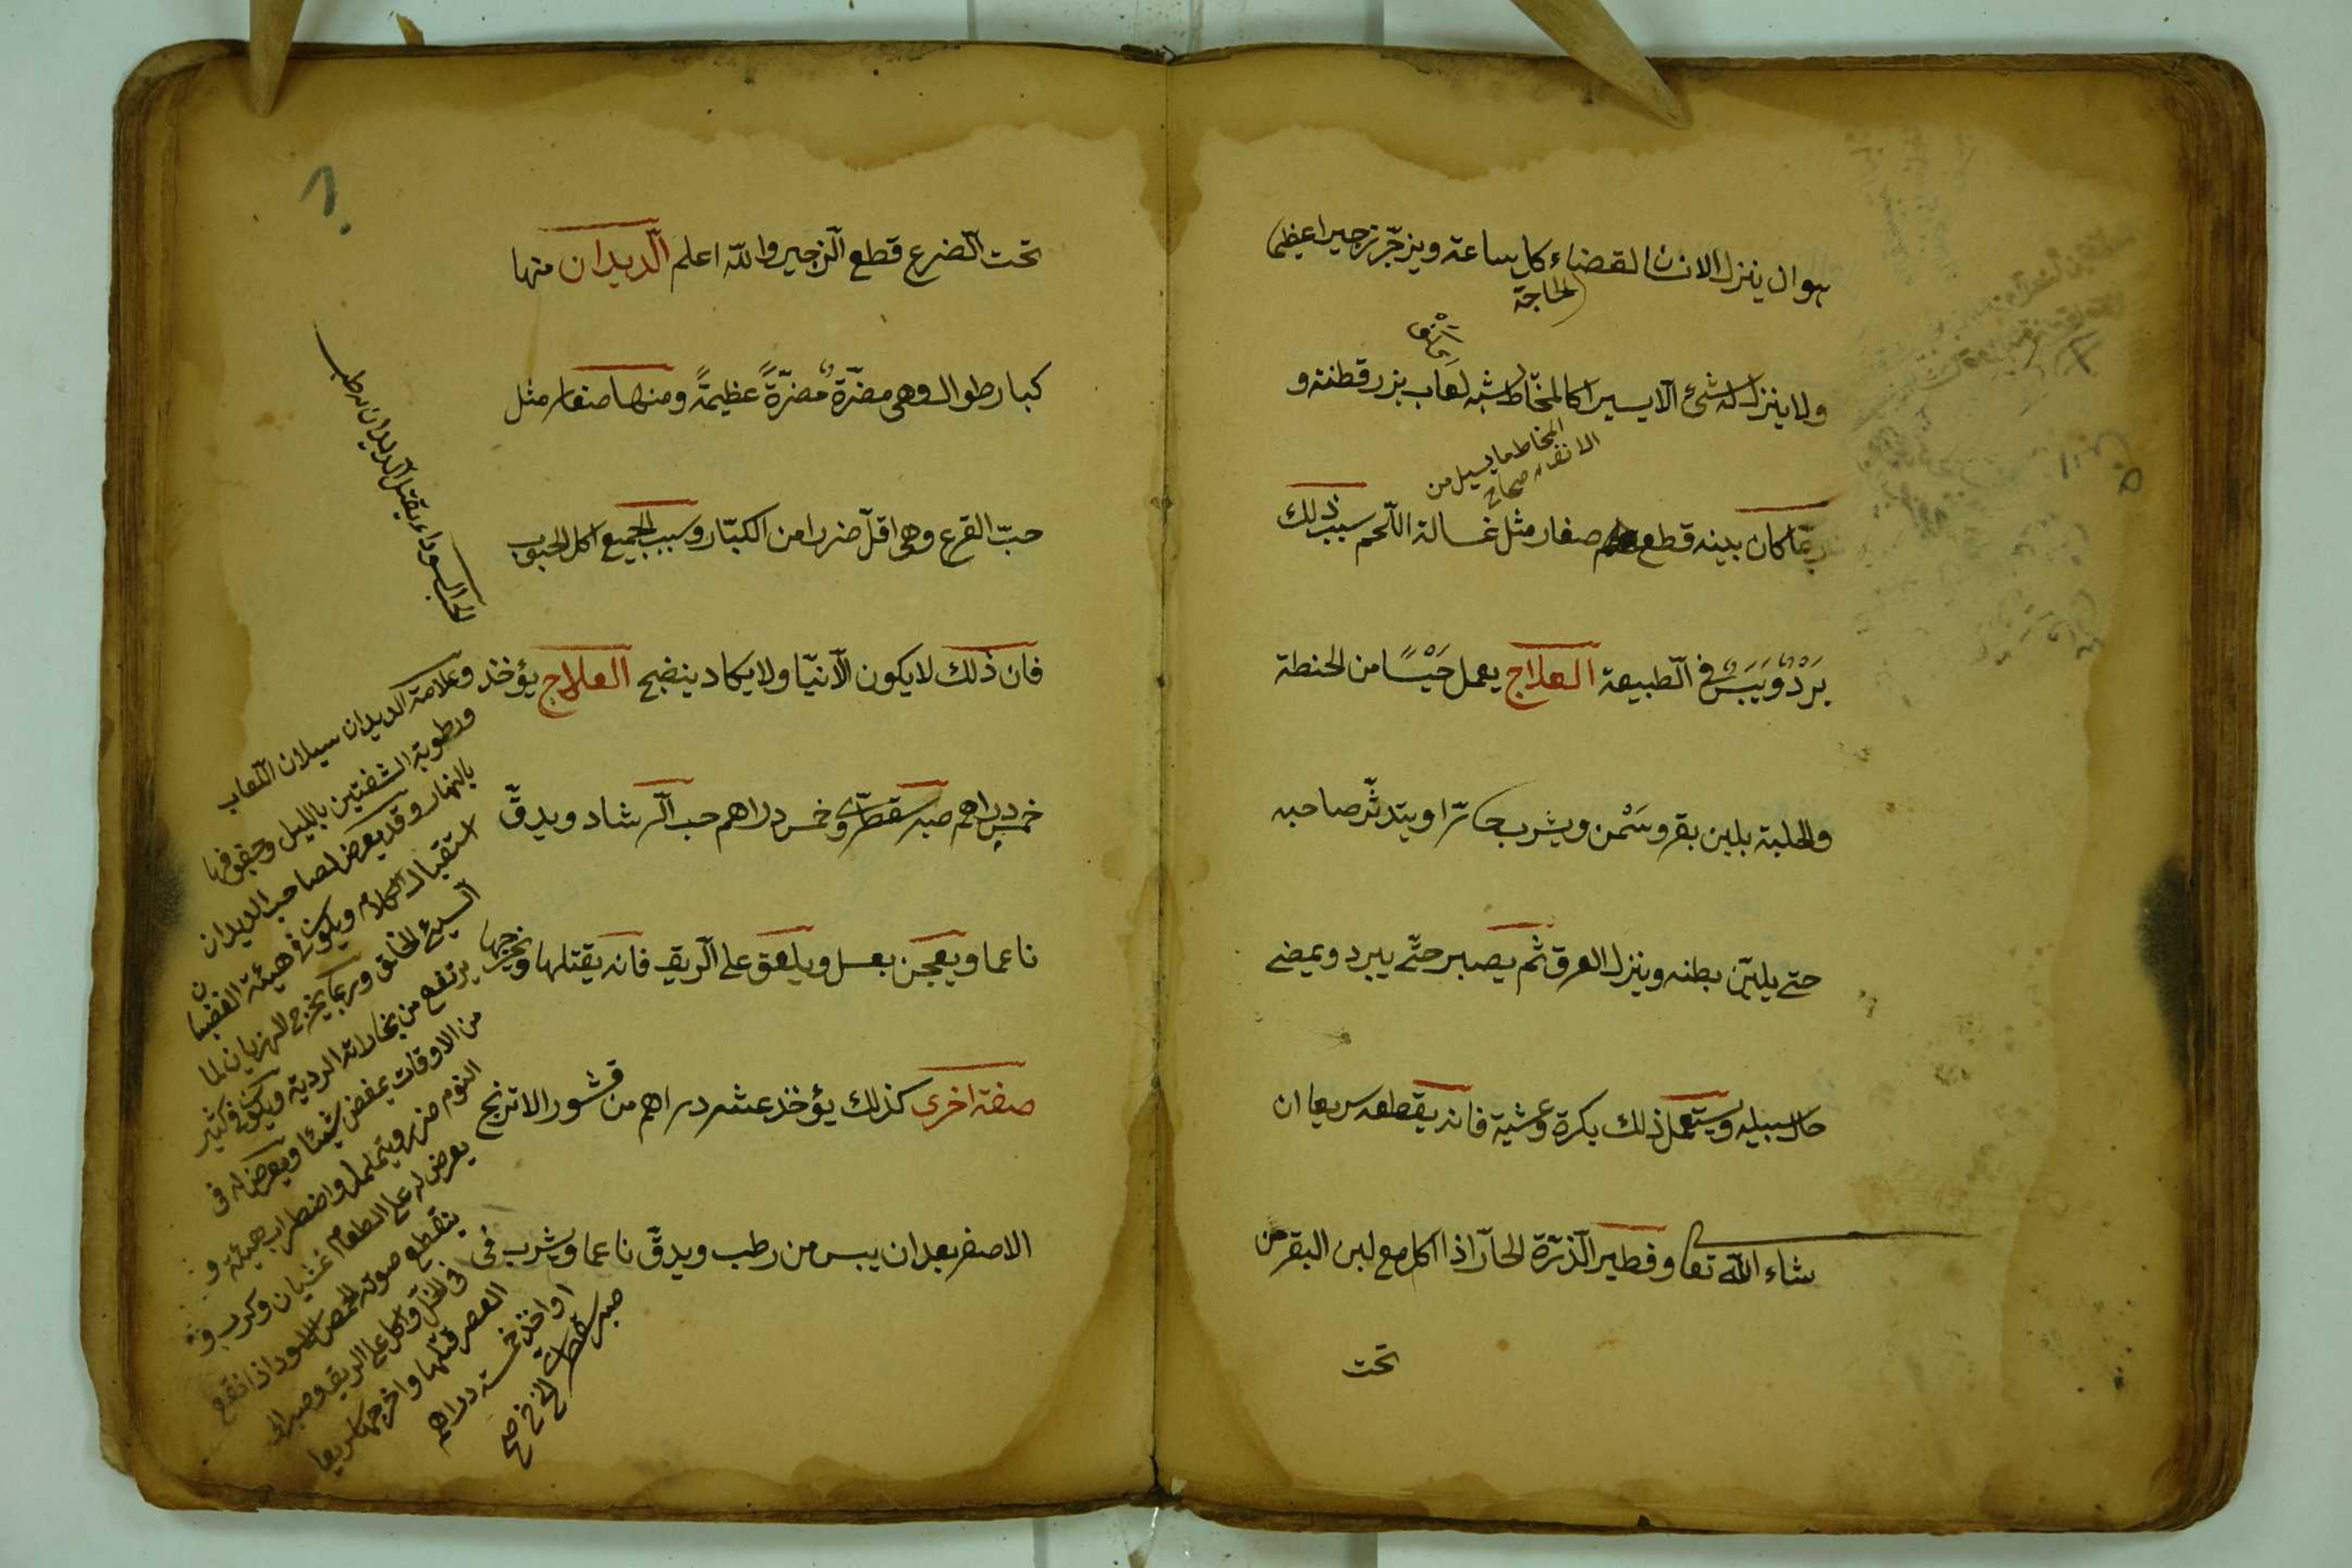 هوان ينزل الانسان لقضاء كل ساعة ويزجر زجيرا عظيما
الحاجة
ولا ينزل له شئ الا يسيرا كالمخاط اشبه لعاب بزر قطنه و
المخاط ما يسيل من
الانف صحاح
ربما كان بينه قطع صغار مثل غسالة اللحم سبب ذلك
بَرْدٌ وَيَبَسٌ في الطبيعة العلاج يعمل حَيْسًا من الحنطة
والحلبة بلبن بقر وسَمْن ويشرب حارّا ويتدثّر صاحبه
حتى يليّن بطنه وينزل العرق ثم يصبر حتّى يبرد ويمضى
حال سبيله ويستعمل ذلك بكرة وعشية فانه يقطعه سريعا ان
شاء الله تعا وفطير الذّرة الحارّ اذا اكل مع لبن البقر من
تحت
تحت الضرع قطع الزجير والله اعلم الديدان منها
كبار طوال وهى مضرّة مضرّةً عظيمةً ومنها صغار مثل
حبّ القرع وهى اقلّ ضررا من الكبار وسبب الجميع اكل الحبوب
فان ذلك لا يكون الا نيّا ولا يكاد ينضج العلاج يؤخذ
خمس دراهم صبر سقطرى وخمس دراهم حب الرشاد ويدقّ
ناعما ويعجن بعسل ويلعق على الريق فانه يقتلها ويخرجها
صفة اخرى كذلك يؤخذ عشر دراهم من قشور الاترنج
الاصفر بعد ان يبس من رطب ويدقّ ناعما ويشرب فى
الحب السوداء يقتل الديدان رطب
وعلامة الديدان سيلان اللعاب
ورطوبة الشفتين بالليل وجفوفها
بالنهار وقد يعرض لصاحب الديدان
استقبال الكلام ويكون فى هيئة الغضبان
السيئ الخلق وربما يخرج لهذيان لما
يرتفع من بخاراته الردية ويكون فى كثير
من الاوقات يمغض شيئا ويعرض له فى
النوم ويتململ واضطراب هيئة و
يعرض له على الطعام غثيان وكرب و
ينقطع صوته الحمص الاسود اذا نقع
فى الخلّ واكل على الريق وصبر الى
العصر قتلها واخرجها سريعا
او اخذ خمسة دراهم
صبر سقطرى الخ نخ صح